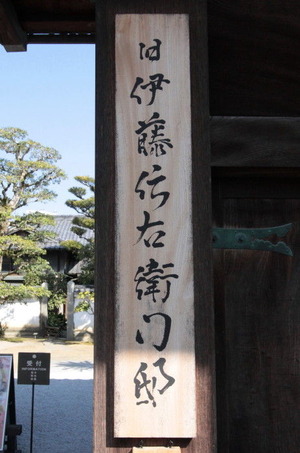 旧伊藤伝右衛門邸
受付
INFORMATION